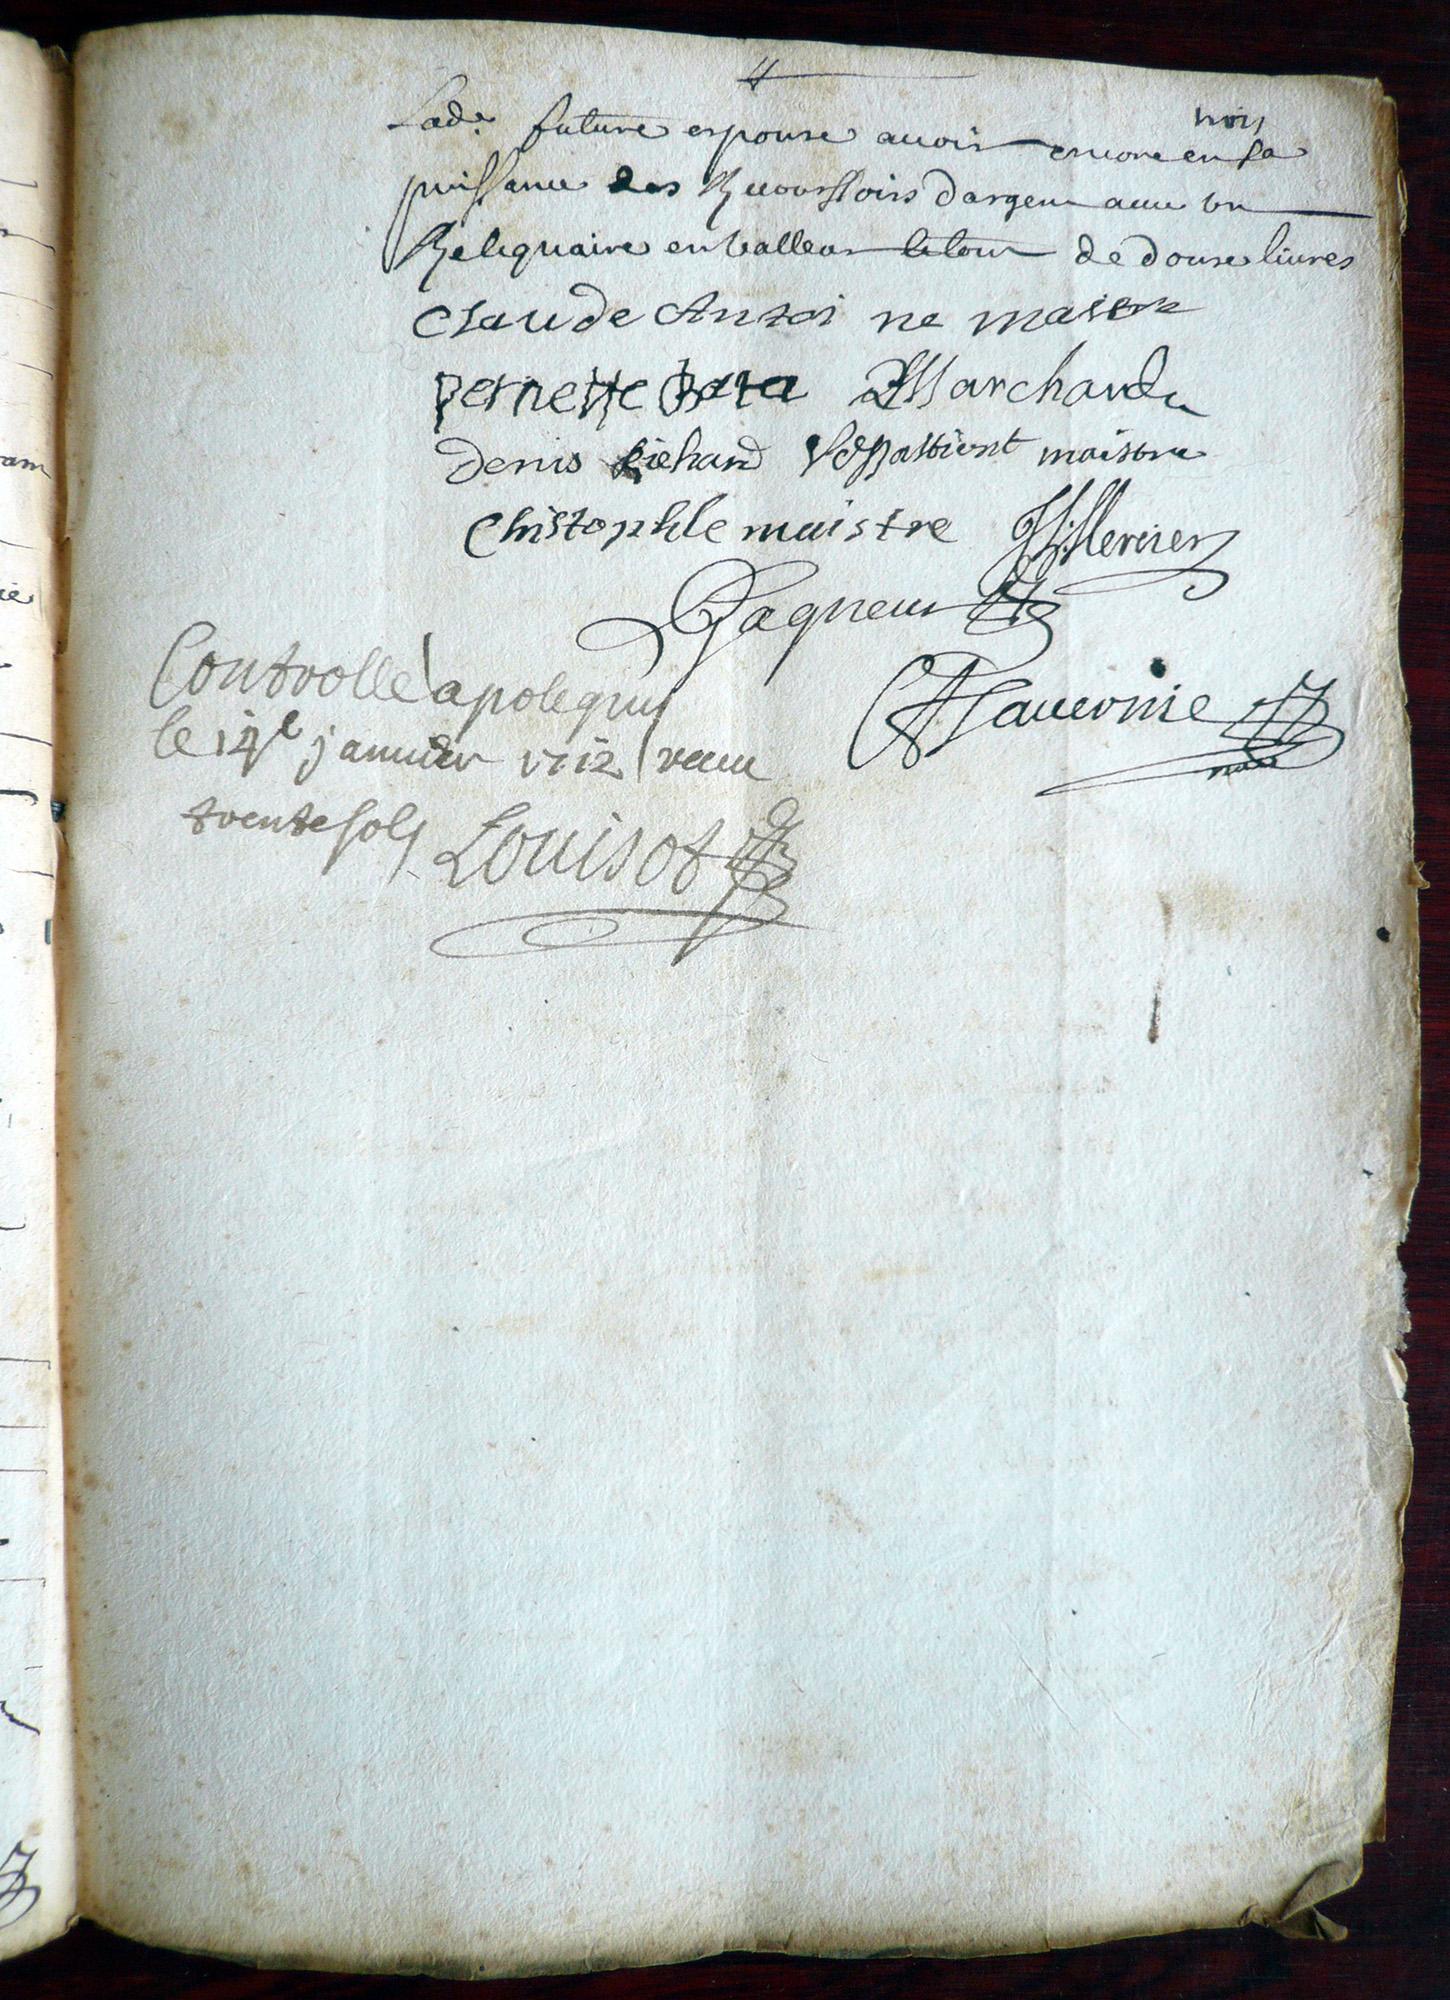 Lad.e future espouse auoir encore en sa
puissance des Recourssoirs dargent auec vn
Reliquaire en valleur le tour de douse liures
Claude Antoine maistre
pernette Marchand
denis richard maistre
Christophle maistre J Mercier
Gagneur
Controllé a poligny
le 14e januier 1712 receu
trente sols Louisot